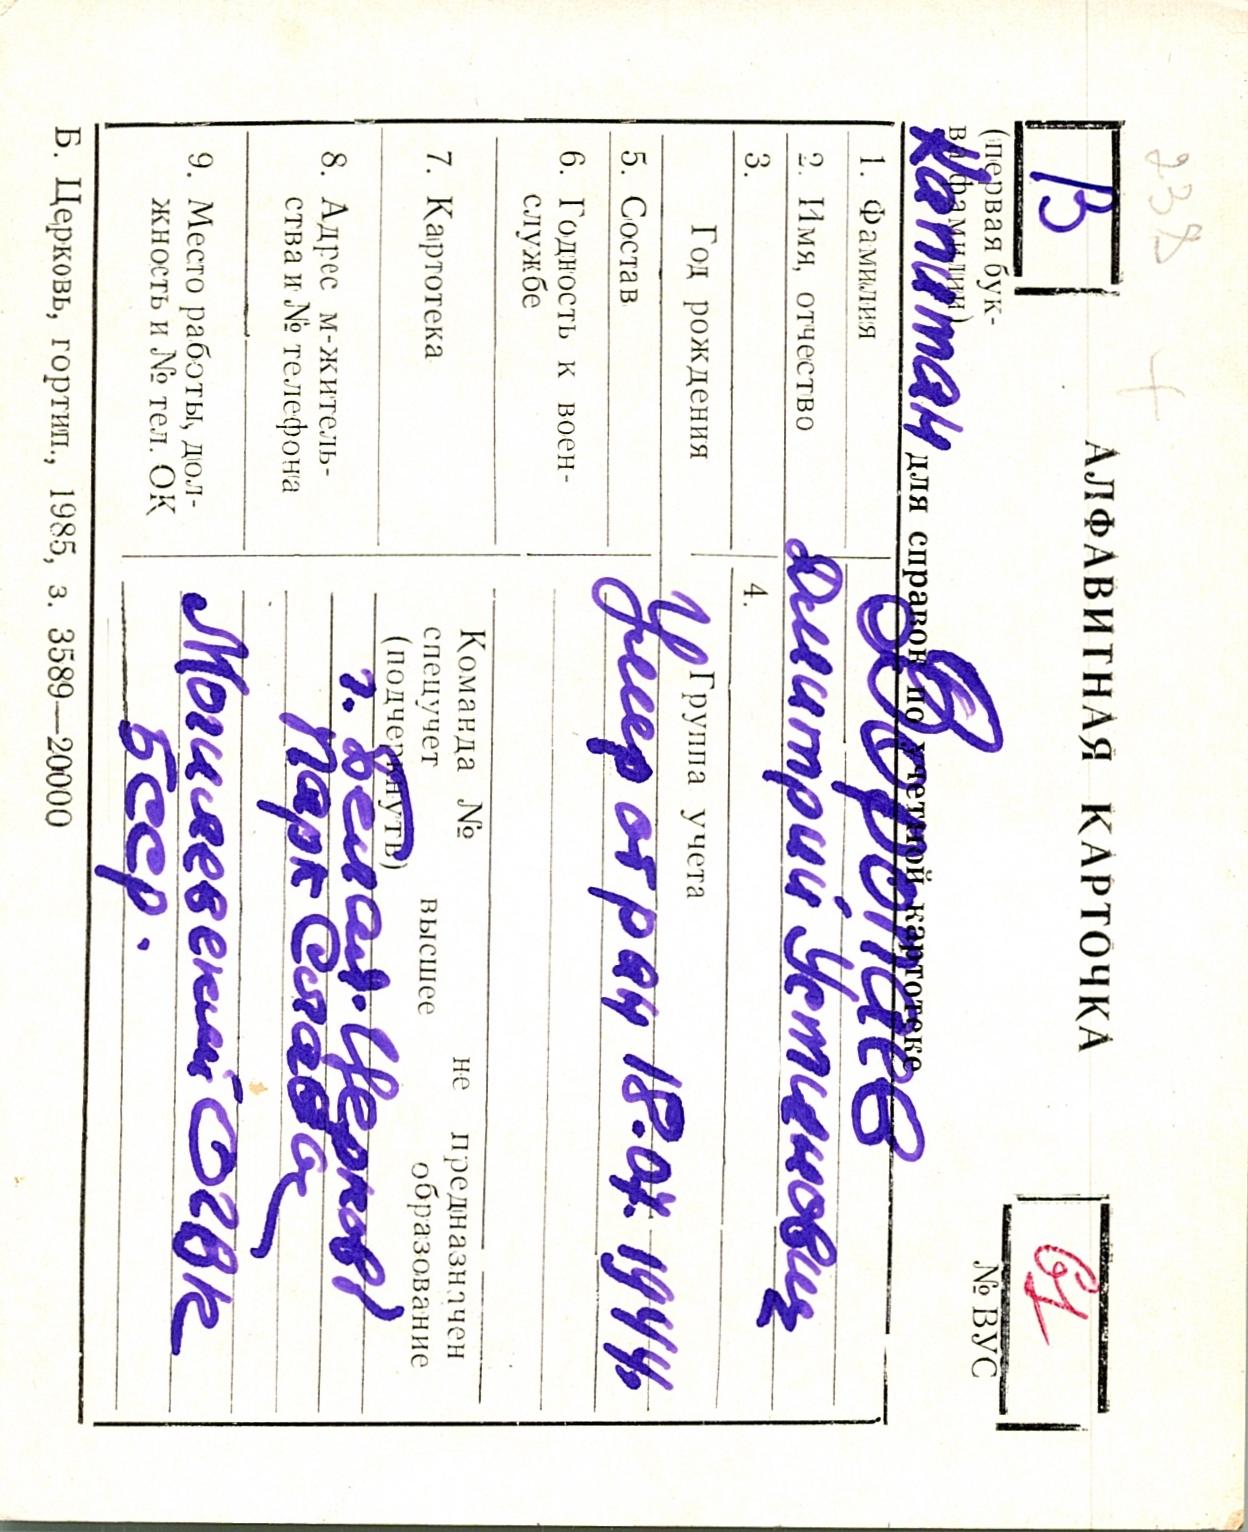 238 +
АЛФАВИТНАЯ КАРТОЧКА
В
61
(первая бук-
ва фамилии)
№ ВУС
Капитан
для справок по учетной картотеке
1. Фамилия
Воропаев
2. Имя, отчество
Дмитрий Устинович
3.
4.
Год рождения
Группа учета
5. Состав
Умер от ран 18.04.1944
6. Годность к воен-
службе
7. Картотека
Команда № не предназначен
спецучет высшее образование
(подчеркнуть)
8. Адрес м-житель-
ства и № телефона
г. Белая-Церковь
Парк Слава
9. Место работы, дол-
жность и № тел. ОК
Могилевский ОГВК
БССР.
Б. Церковь, гортип., 1985, з. 3589—20000